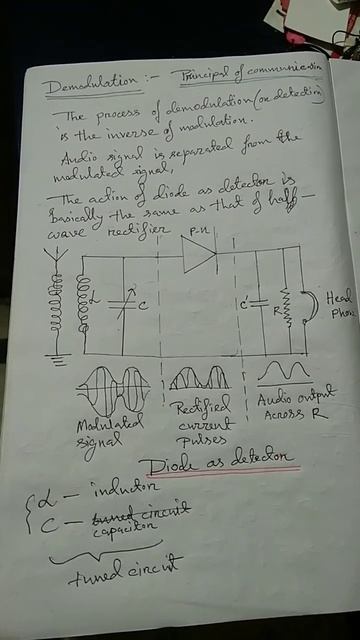 Demodulation :- Principal of communication
The process of demodulation (or detection)
is the inverse of modulation.
Audio signal is separated from the
modulated signal,
The action of diode as detector is
basically the same as that of half-
wave rectifier
P-n
L
C
C'
R
Head
Phone
Modulated
signal
Rectified
current
pulses
Audio output
Across R
Diode as detector
L - inductor
C - tuned circuit
capacitor
tuned circuit